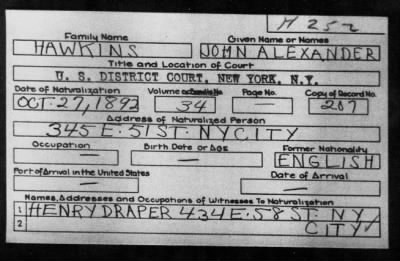 H 252
Family Name Given Name or Names
HAWKINS JOHN ALEXANDER
Title and Location of Court
U. S. DISTRICT COURT, NEW YORK, N.Y.
Date of Naturalization Volume or Bundle No. Page No. Copy of Record No.
OCT. 27, 1892 34 — 207
Address of Naturalized Person
345 E. 51 ST. NY CITY
Occupation Birth Date or Age Former Nationality
— — ENGLISH
Port of Arrival in the United States Date of Arrival
— —
Names, Addresses and Occupations of Witnesses To Naturalization
1 HENRY DRAPER 434 E. 58 ST. NY
2 CITY